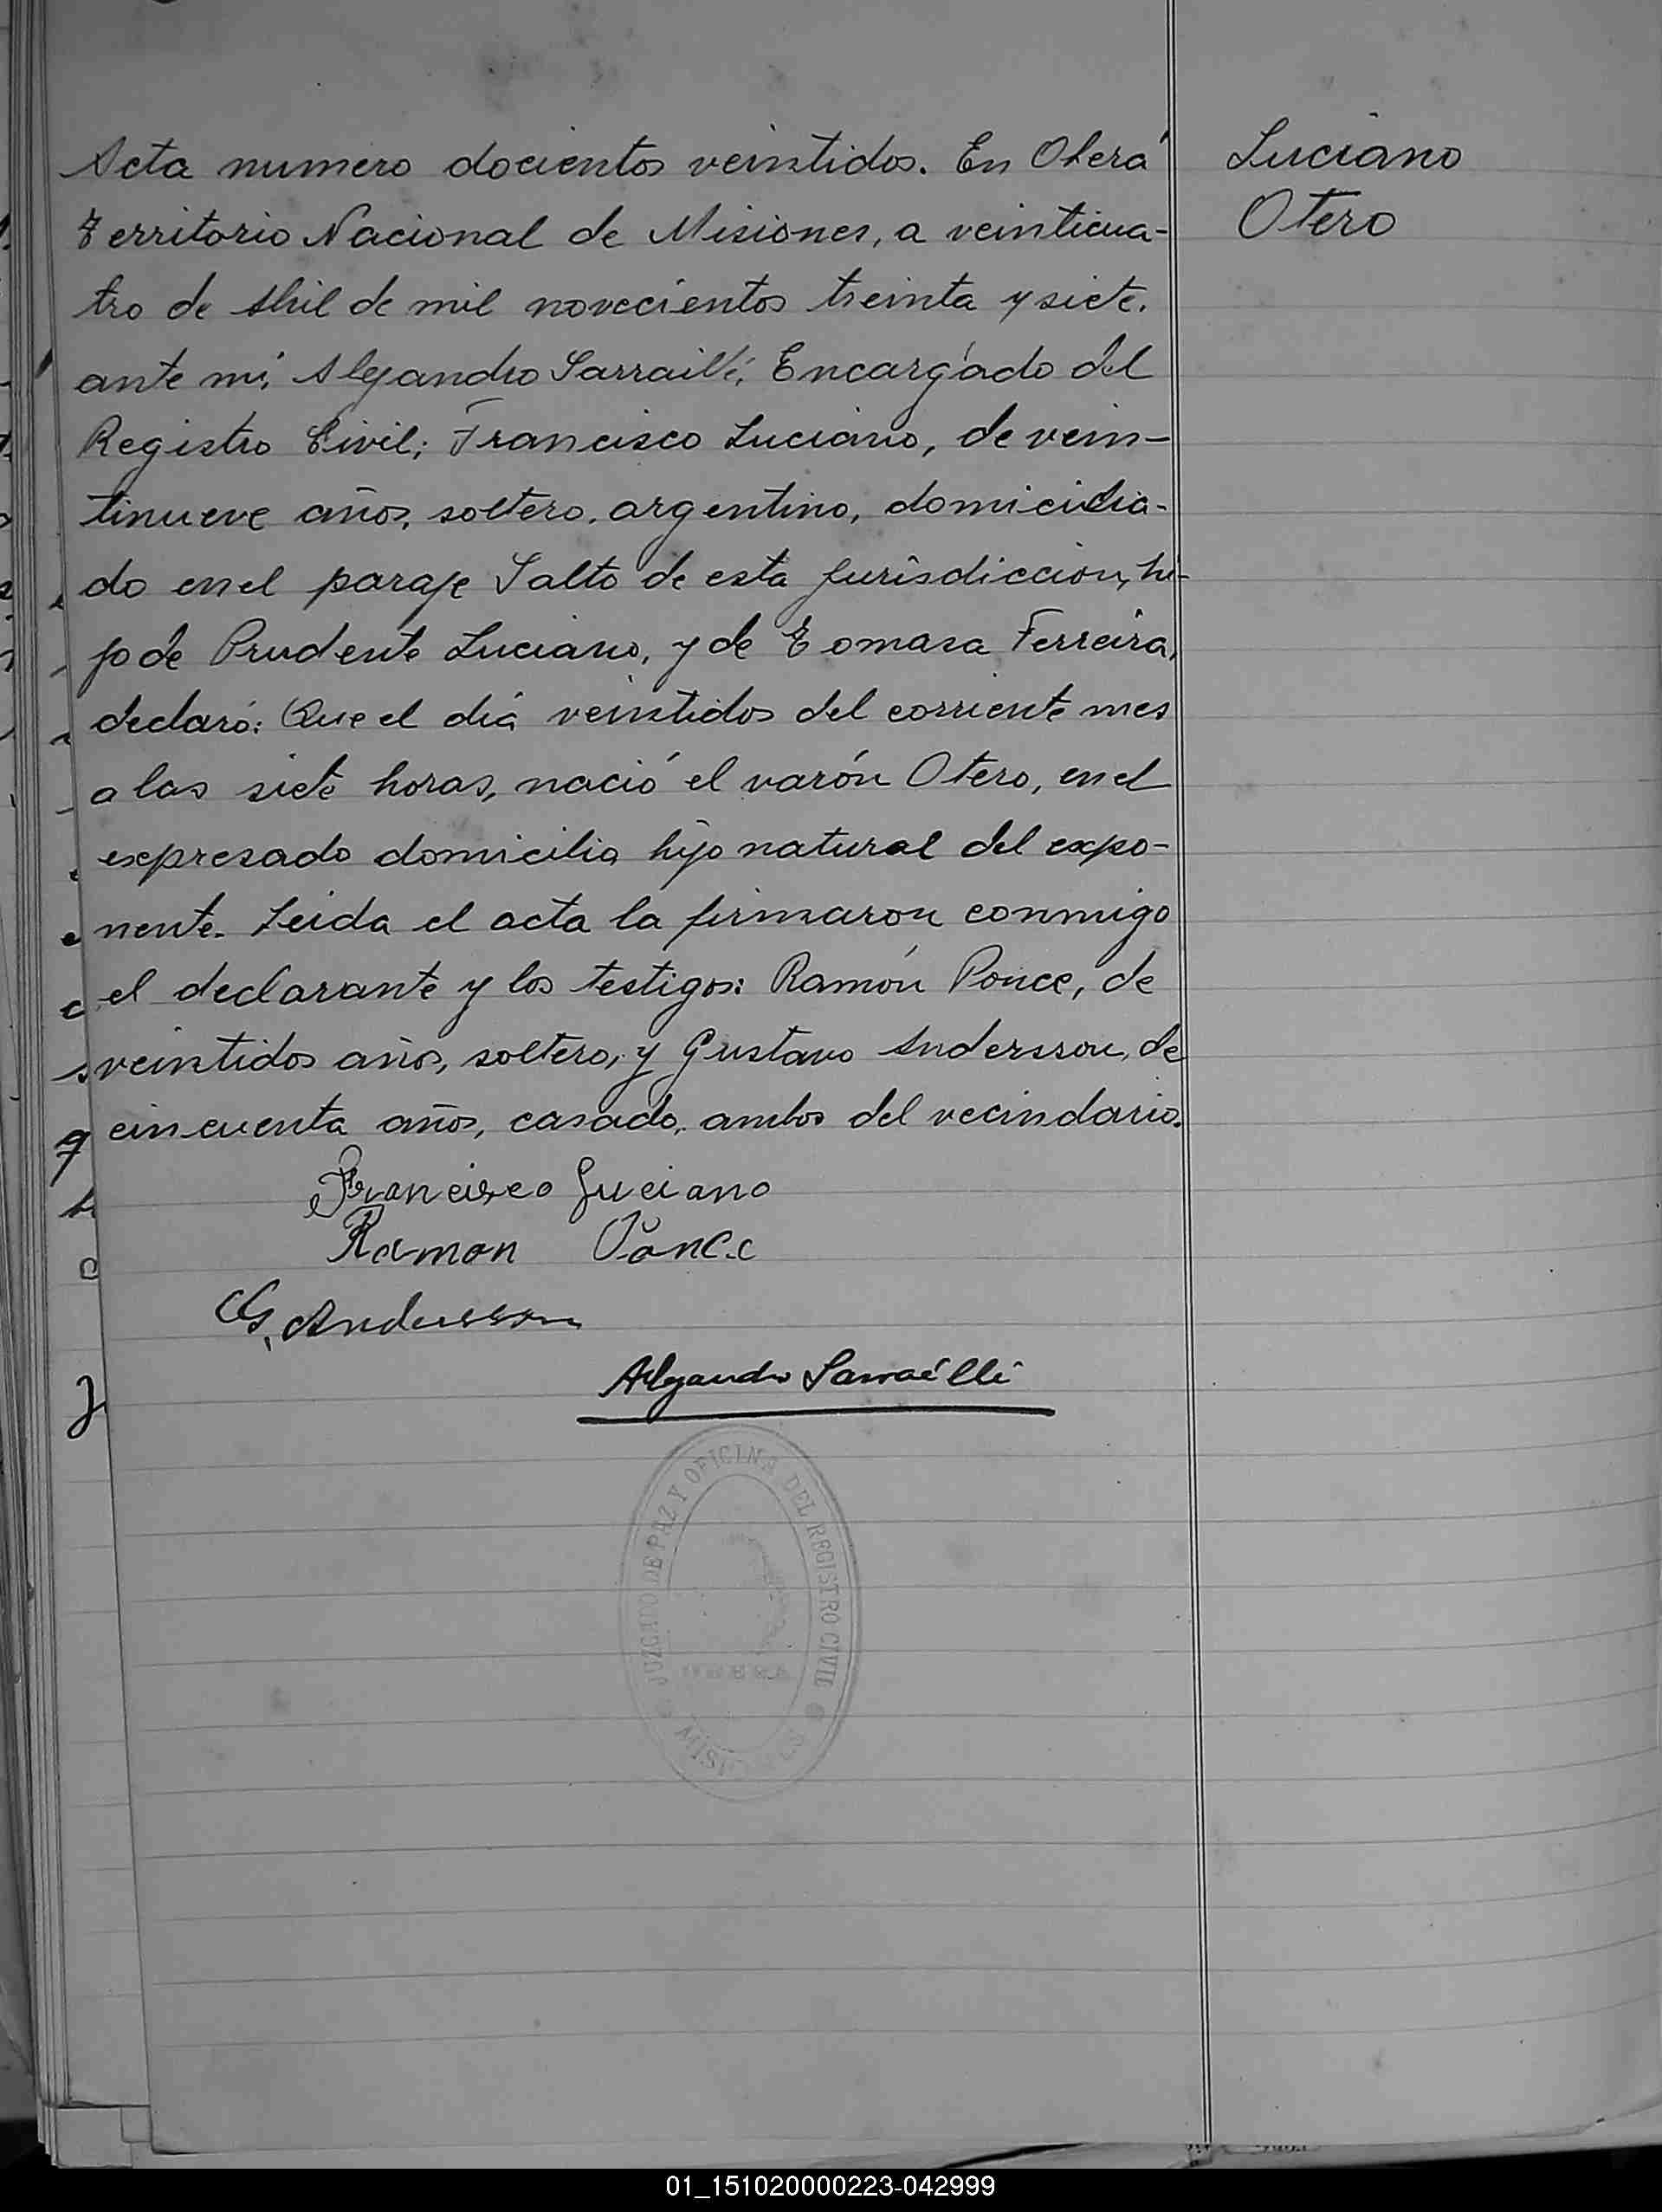 Acta numero docientos veintidos. En Oberá
Territorio Nacional de Misiones, a veinticua-
tro de Abril de mil novecientos treinta y siete.
ante mi, Alejandro Sarrailli, Encargado del
Registro Civil; Francisco Luciano, de vein-
tinueve años, soltero, argentino, domicilia-
do en el paraje Salto de esta jurisdiccion, hi-
jo de Prudente Luciano, y de Tomasa Ferreira,
declaró: Que el dia veintidos del corriente mes
a las siete horas, nació el varón Otero, en el
expresado domicilio, hijo natural del expo-
nente. Leida el acta la firmaron conmigo
el declarante y los testigos: Ramón Ponce, de
veintidos años, soltero, y Gustavo Andersson, de
cincuenta años, casado, ambos del vecindario.
Francisco Luciano
Ramon Ponce
G. Andersson
Alejandro Sarrailli
Luciano
Otero
JUZGADO DE PAZ Y OFICINA DEL REGISTRO CIVIL
OBERA
MISIONES
01_151020000223-042999